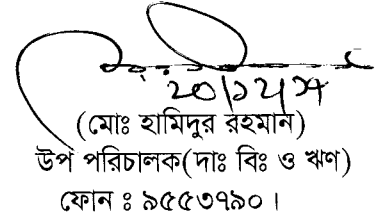 (মোঃ হামিদুর রহমান)
উপ পরিচালক(দাঃ বিঃ ও ঋণ)
ফোন ঃ ৯৫৫৩৭৯০।